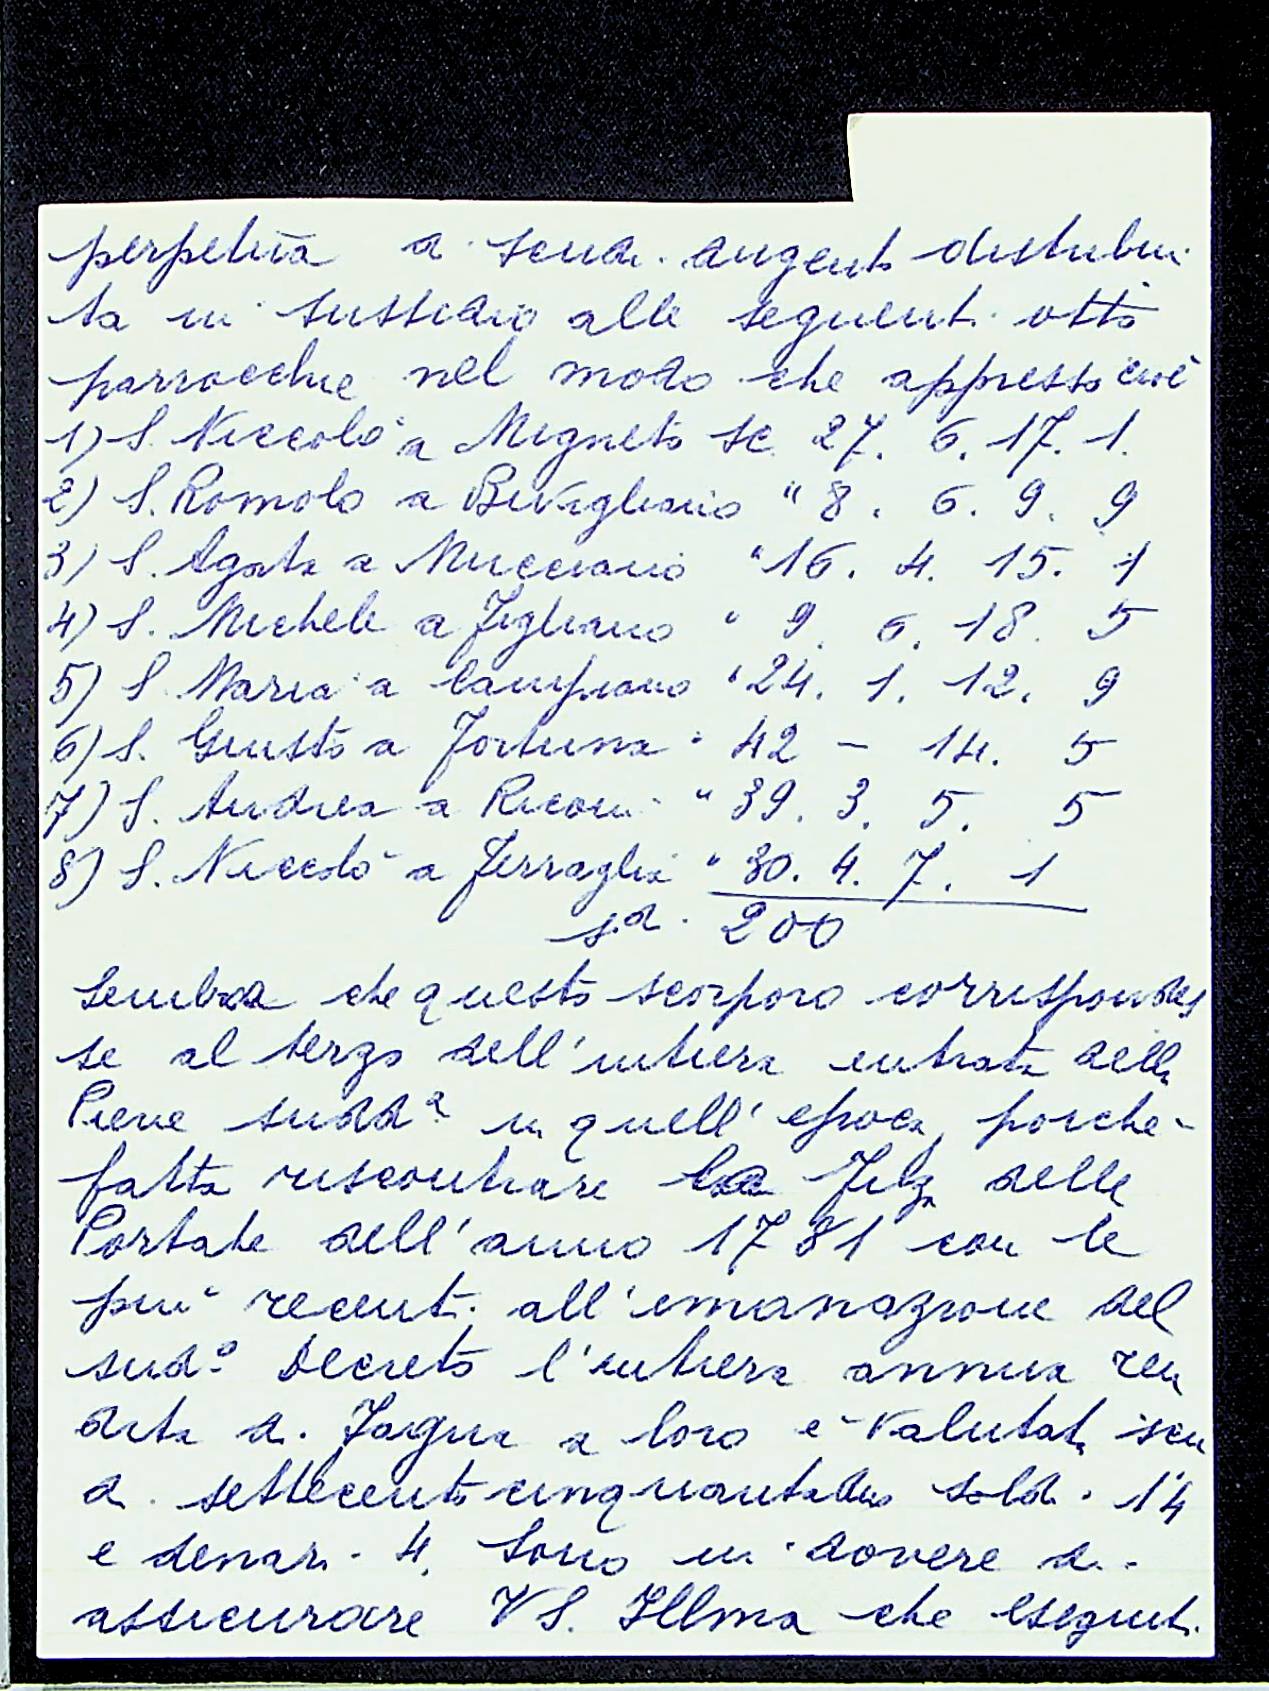 perpetua di scudi dugento distribui-
ta in sussidio alle seguenti otto
parrocchie nel modo che appresso cioè
1) S. Niccolò a Migneto sc. 27. 6. 17. 1.
2) S. Romolo a Bivigliano " 8. 6. 9. 9
3) S. Agata a Mucciano " 16. 4. 15. 1
4) S. Michele a Figliano " 9. 6. 18. 5
5) S. Maria a Campiano " 24. 1. 12. 9
6) S. Giusto a Fortuna " 42 - 14. 5
7) S. Andrea a Ricavi " 39. 3. 5. 5
8) S. Niccolò a Ferraglia " 30. 4. 7. 1
sd. 200
Sembra che questo scorporo corrispondes
se al terzo dell'intiera entrata della
Pieve sudda in quell'epoca, poiché
fatta riscontrare la Filza delle
Portate dell'anno 1781 con le
più recenti all'emanazione del
sudº Decreto l'intiera annua ren
dita di Fagna a loro è valutata scu
di settecentocinquantadue soldi 14
e denari 4. Sono in dovere di
assicurare VS. Illma che eseguit.